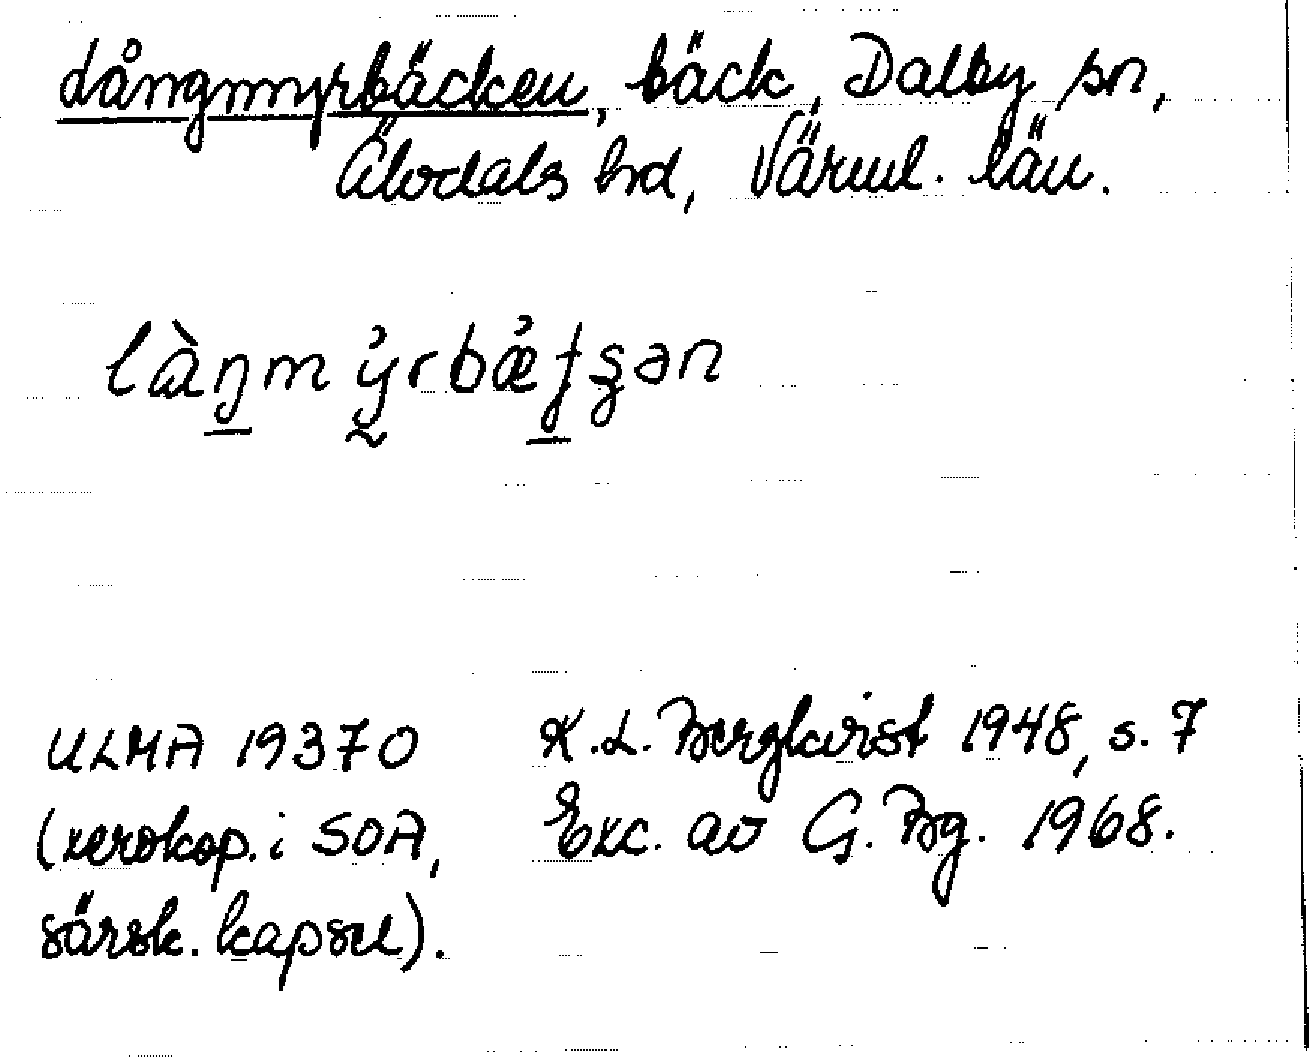 Långmyrbäcken, bäck, Dalby sn,
Älvdals hd, Värml. län.
làŋmy̓rbæ̓ʄʂən
ULMA 19370
(xerokop. i SOA,
särsk. kapsel).
K.L. Bergkvist 1948, s. 7
Exc. av G. Bg. 1968.